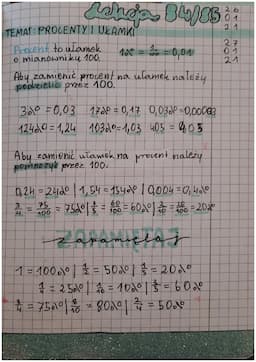 Lekcja 84/85
26
01
21
TEMAT: PROCENTY I UŁAMKI
27
01
21
Procent to ułamek
o mianowniku 100.
1% = 1/100 = 0,01
Aby zamienić procent na ułamek należy
podzielić przez 100.
3% = 0,03 17% = 0,17 0,03% = 0,0003
124% = 1,24 103% = 1,03 405 = 4,05
Aby zamienić ułamek na procent należy
pomnożyć przez 100.
0,24 = 24% | 1,54 = 154% | 0,004 = 0,4%
3/4 = 75/100 = 75% | 3/5 = 60/100 = 60% | 2/10 = 20%
zapamiętaj
1 = 100% | 1/2 = 50% | 1/5 = 20%
1/4 = 25% | 1/10 = 10% | 3/5 = 60%
3/4 = 75% | 8/10 = 80% | 2/4 = 50%